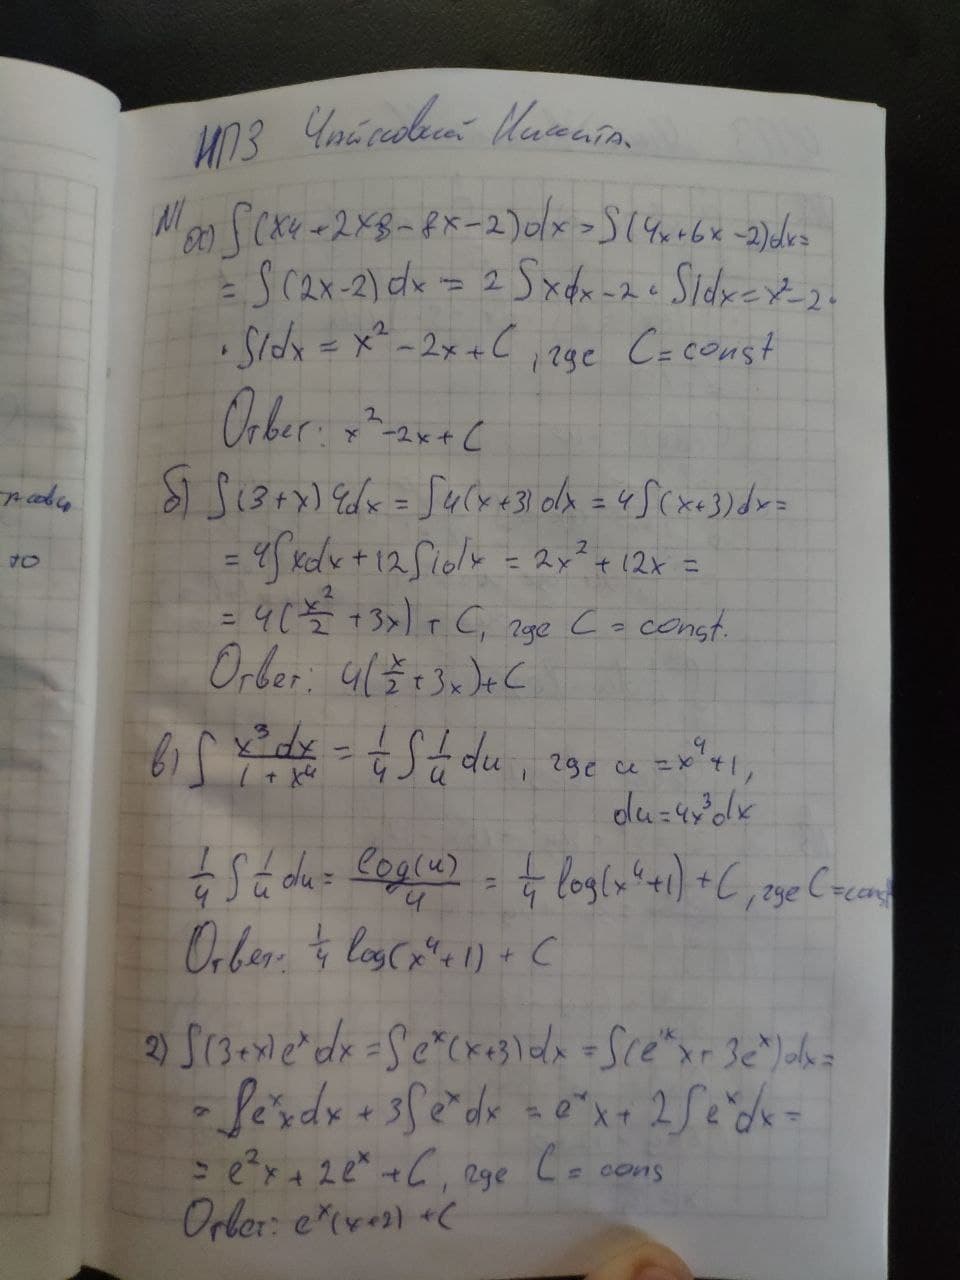 ИПЗ Чайковский Никита.
N1 а) ∫(x4+2x3-8x-2)dx=∫(4x+6x-2)dx=
=∫(2x-2)dx = 2∫xdx-2·∫1dx=x²-2·
·∫1dx = x²-2x+C, где C=const
Ответ: x²-2x+C
б) ∫(3+x)4dx = ∫4(x+3)dx = 4∫(x+3)dx=
= 4∫xdx+12∫1dx = 2x²+12x =
= 4(x²/2+3x)+C, где C = const.
Ответ: 4(x/2+3x)+C
в) ∫ x³dx/1+x⁴ = 1/4 ∫ 1/u du, где u=x⁴+1,
du=4x³dx
1/4 ∫ 1/u du = log(u)/4 = 1/4 log(x⁴+1)+C, где C=const
Ответ: 1/4 log(x⁴+1)+C
г) ∫(3+x)eˣdx=∫eˣ(x+3)dx=∫(eˣx+3eˣ)dx=
= ∫eˣxdx+3∫eˣdx = eˣx+2∫eˣdx=
= e²x+2eˣ+C, где C = cons
Ответ: eˣ(x+2)+C
то